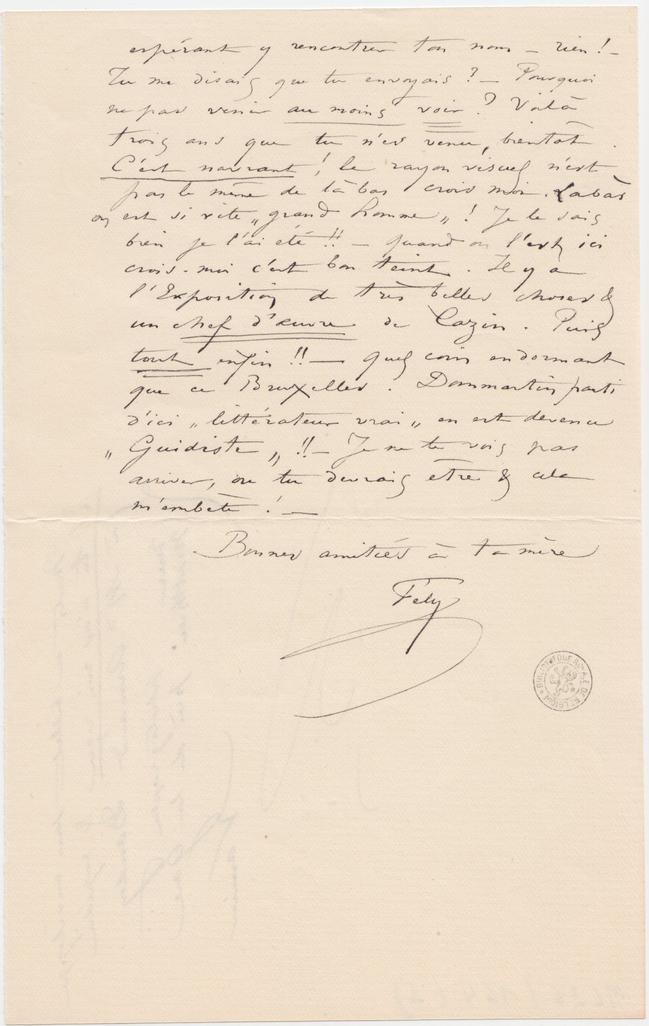 espérant y rencontrer ton nom – rien ! –
Tu me disais que tu envoyais ? – Pourquoi
ne pas venir au moins voir ? Voilà
trois ans que tu n'es venu, bientôt.
C'est navrant ! le rayon visuel n'est
pas le même de là bas crois moi. Labàs
on est si vite „ grand homme „ ! Je le sais
bien je l'ai été !! – quand on l'est ici
crois-moi c'est bon teint. Il y a
l'Exposition de très belles choses &
un chef d'œuvre de Cazin. Puis
tout enfin !! – quel coin endormant
que ce Bruxelles. Dommartin parti
d'ici „ littérateur vrai „ en est devenu
„ Guidiste „ !! – Je ne te vois pas
arriver, où tu devrais être & cela
m'embête ! –
Bonnes amitiés à ta mère
Fély
BIBLIOTHEQUE ROYALE DE BELGIQUE